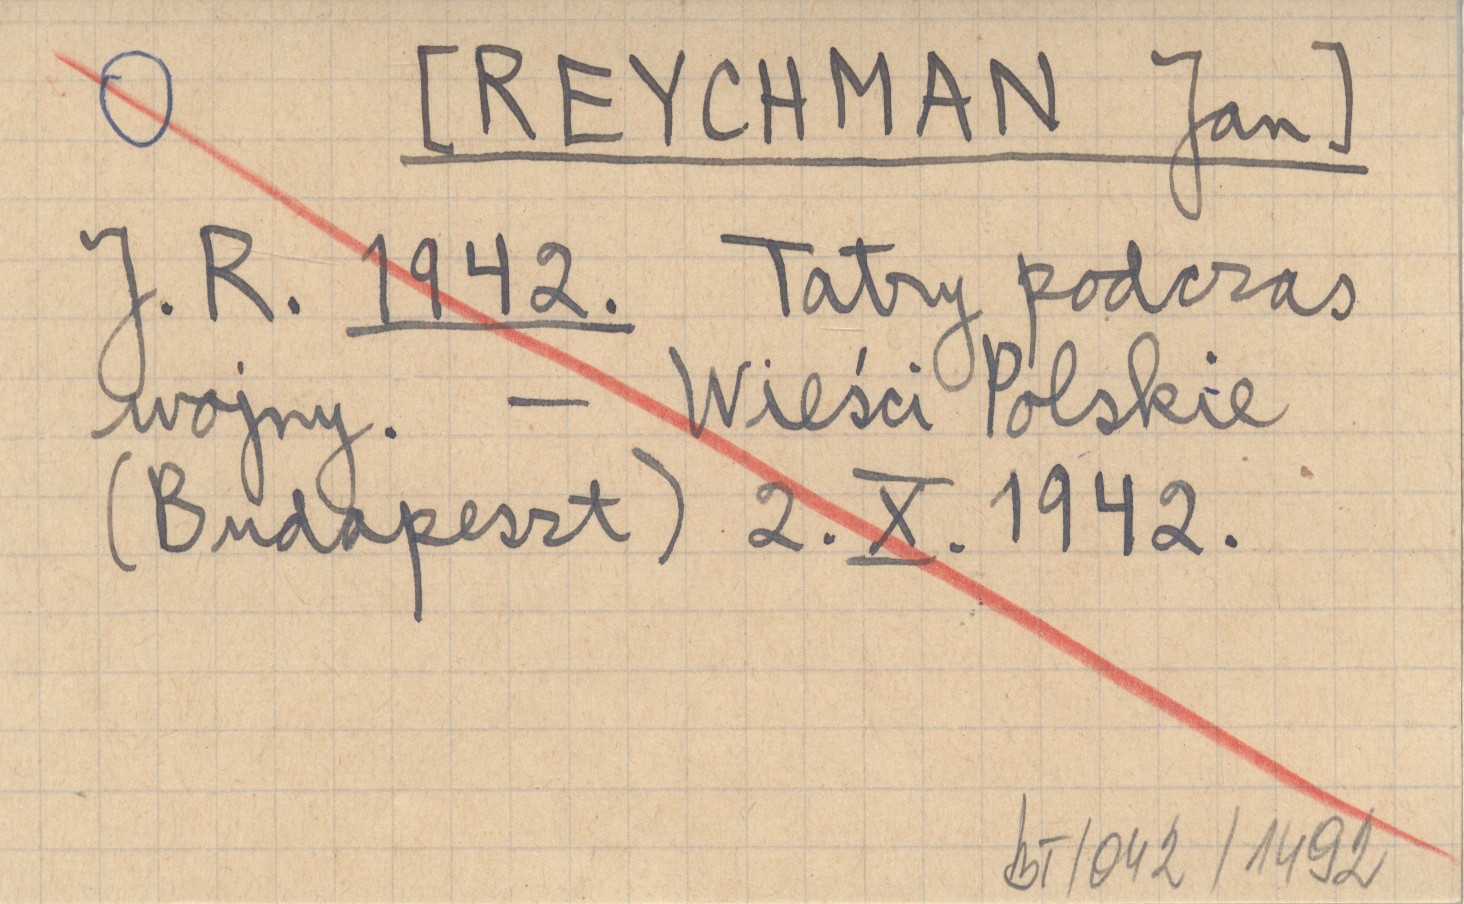 [REYCHMAN Jan]
J. R. 1942. Tatry podczas
wojny. — Wieści Polskie
(Budapeszt) 2. X. 1942.
bT/042/1492